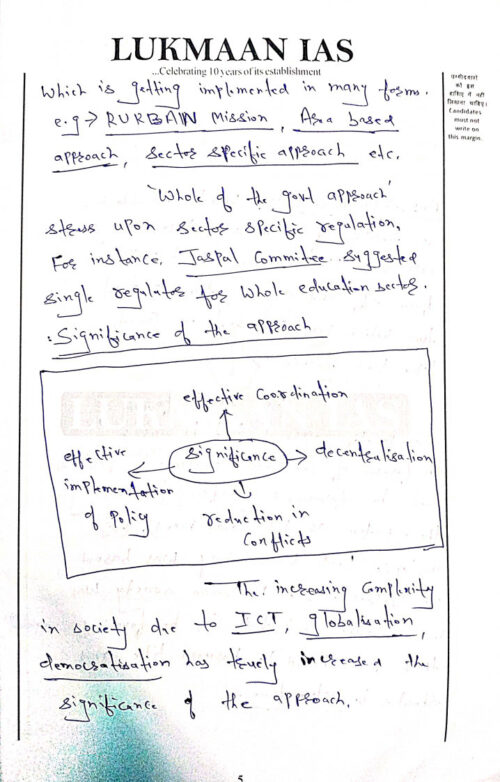 LUKMAAN IAS
...Celebrating 10 years of its establishment
उम्मीदवारों
को इस
हाशिए में नहीं
लिखना चाहिए।
Candidates
must not
write on
this margin.
Which is getting implemented in many forms.
e.g → RURBAN Mission, Area based
approach, sector specific approach etc.
'Whole of the govt approach'
stress upon sector specific regulation.
For instance, Jaspal Commitee suggested
single regulator for whole education sector.
: Significance of the approach
effective coordination
significance
decentralisation
effective
implementation
of Policy
reduction in
Conflicts
The increasing Complexity
in society due to ICT, globalisation,
democratisation has truely increased the
significance of the approach.
5